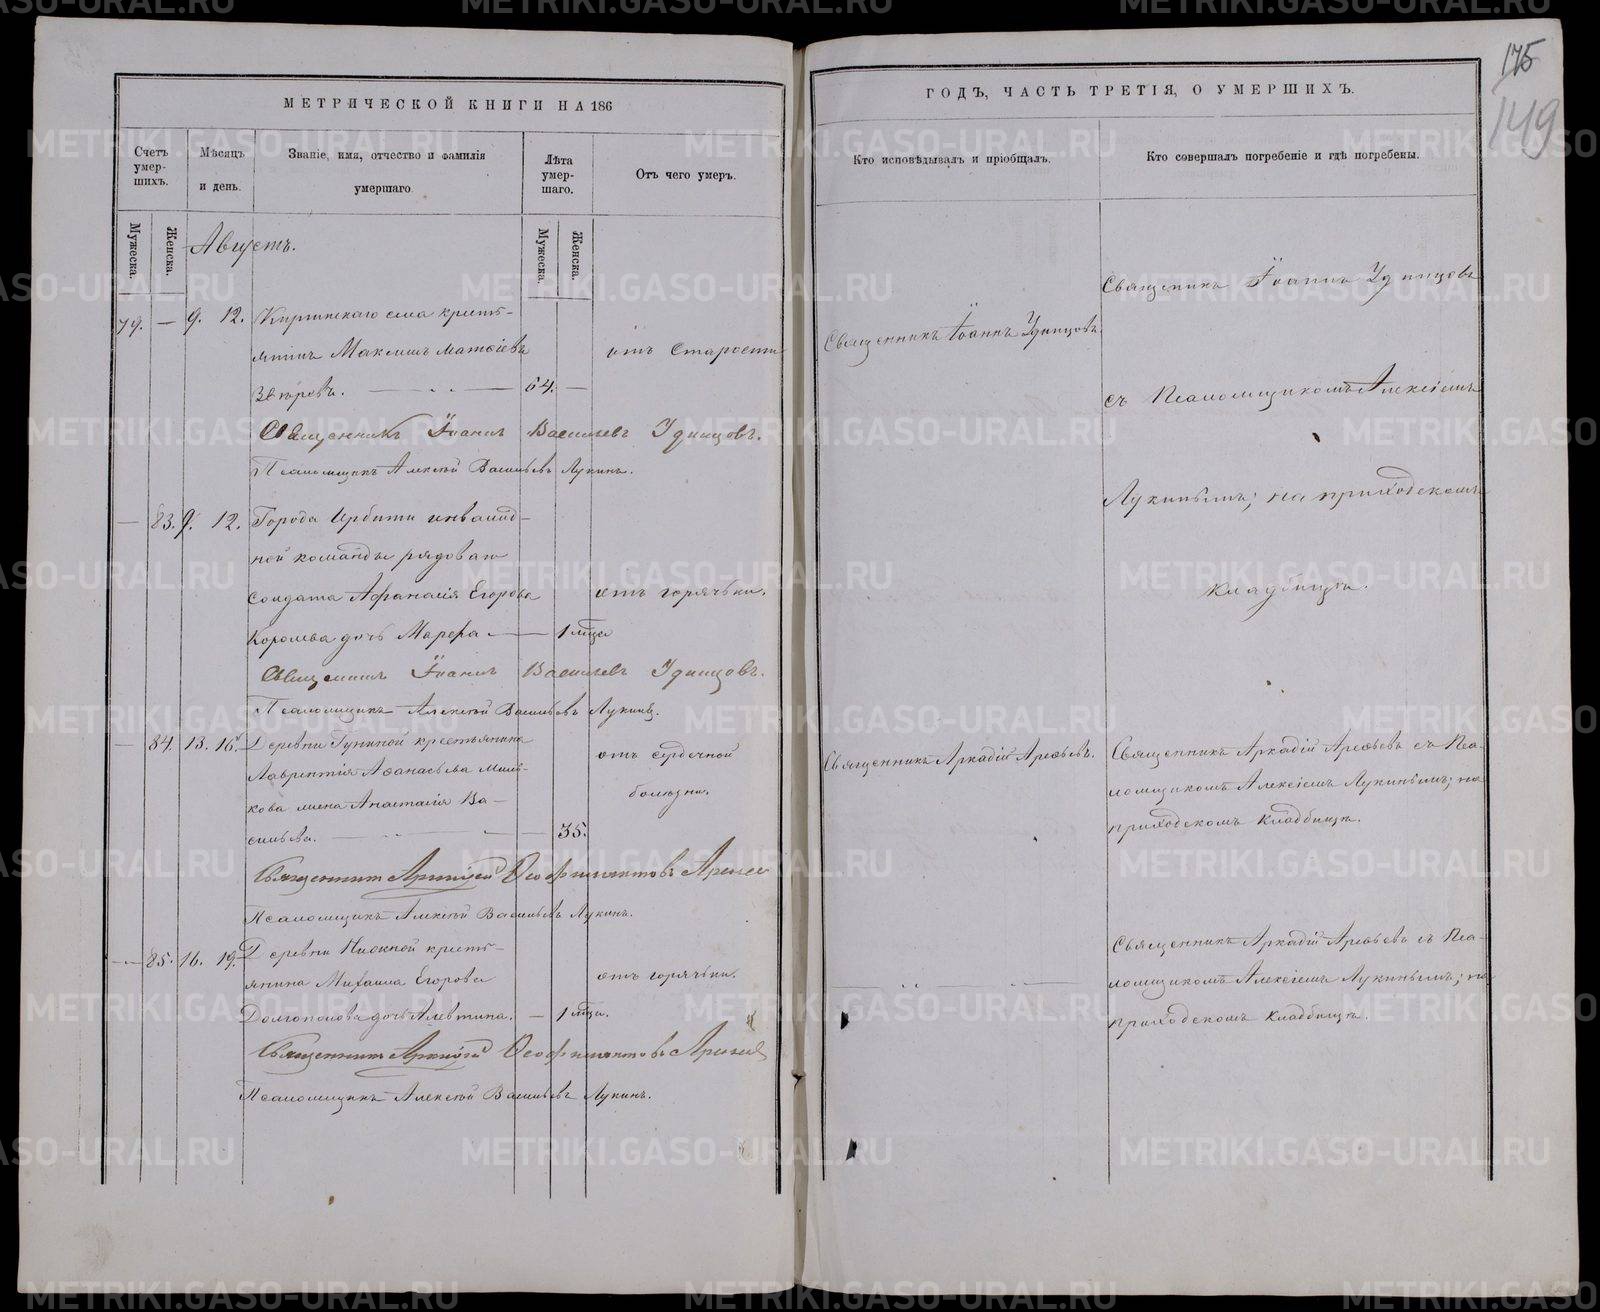 175
149
МЕТРИЧЕСКОЙ КНИГИ НА 186
Счетъ умер-шихъ.
Мѣсяцъ и день.
Званіе, имя, отчество и фамилія умершаго.
Лѣта умер-шаго.
Отъ чего умеръ.
Мужеска.
Женска.
Мужеска.
Женска.
Августъ.
79. — 9. 12. Киргинскаго села кресть-
янинъ Максимъ Матѳіевъ
отъ старости
64. —
Священникъ Іоаннъ Васильевъ Удинцовъ.
Псаломщикъ Алексѣй Васильевъ Лукинъ.
— 83. 9. 12. Города Ирбити инвалид-
ной команды рядоваго
солдата Афанасія Егорова
отъ горячьки.
дочь Марѳа — 1 мѣсца
Священникъ Іоаннъ Васильевъ Удинцовъ.
Псаломщикъ Алексѣй Васильевъ Лукинъ.
— 84. 13. 16. Деревни крестьянина
Лаврентія Аѳанасьева Мель-
кова жена Анастасія Ва-
сильева. — 35.
отъ сердечной
болѣзни.
Священникъ Аркадій Ѳеофилактовъ Арефьев
Псаломщикъ Алексѣй Васильевъ Лукинъ.
— 85. 16. 19. Деревни кресть-
янина Михаила Егорова
Долгополова дочь Алевтина. — 1 мѣсц.
отъ горячьки.
Священникъ Аркадій Ѳеофилактовъ Арефьев
Псаломщикъ Алексѣй Васильевъ Лукинъ.
ГОДЪ, ЧАСТЬ ТРЕТІЯ, О УМЕРШИХЪ.
Кто исповѣдывалъ и пріобщалъ.
Кто совершалъ погребеніе и гдѣ погребены.
Священникъ Іоаннъ Удинцовъ
Священникъ Іоаннъ Удинцовъ
съ Псаломщикомъ Алексіемъ
Лукинымъ; на приходскомъ
кладбищѣ.
Священникъ Аркадій Арефьевъ.
Священникъ Аркадій Арефьевъ съ Пса-
ломщикомъ Алексіемъ Лукинымъ; на
приходскомъ кладбищѣ.
Священникъ Аркадій Арефьевъ съ Пса-
ломщикомъ Алексіемъ Лукинымъ; на
приходскомъ кладбищѣ.
METRIKI.GASO-URAL.RU